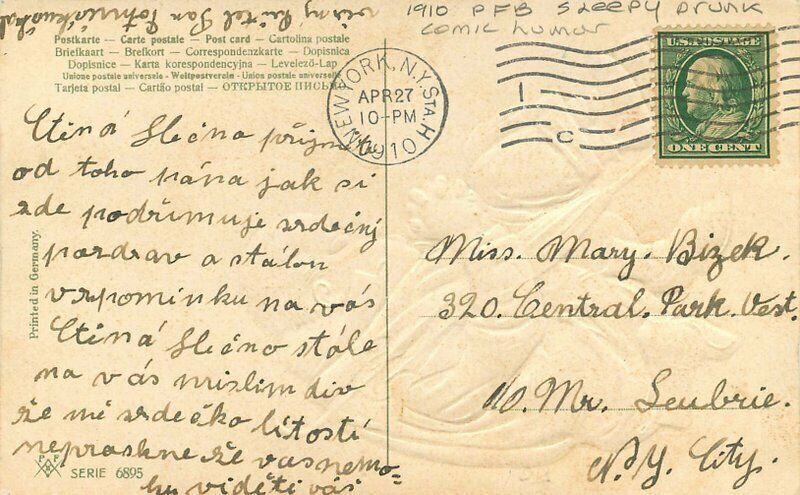 1910 PFB SLEEPY DRUNK
comic humor
věrný přítel Jan
Postkarte — Carte postale — Post card — Cartolina postale
Briefkaart — Brefkort — Correspondenzkarte — Dopisnica
Dopisnice — Karta korespondencyjna — Levelező-Lap
Unione postale universale - Weltpostverein - Union postale universelle
Tarjeta postal — Cartão postal — ОТКРЫТОЕ ПИСЬМО
NEW YORK, N.Y. STA. H
APR 27
10-PM
1910
1
C
U.S. POSTAGE
ONE CENT
Ctiná slečno přijm
od toho pána jak si
zde podřimuje srdečný
pozdrav a stálou
vzpomínku na vás
Ctiná slečno stále
na vás mislim div
že mě srdečko lítostí
nepraskne že vas nemo=
hu viděti váš
Miss. Mary. Bizek.
320. Central. Park. Vest.
c/o. Mr. Leubrie.
N.Y. City.
Printed in Germany.
PFB
SERIE 6895